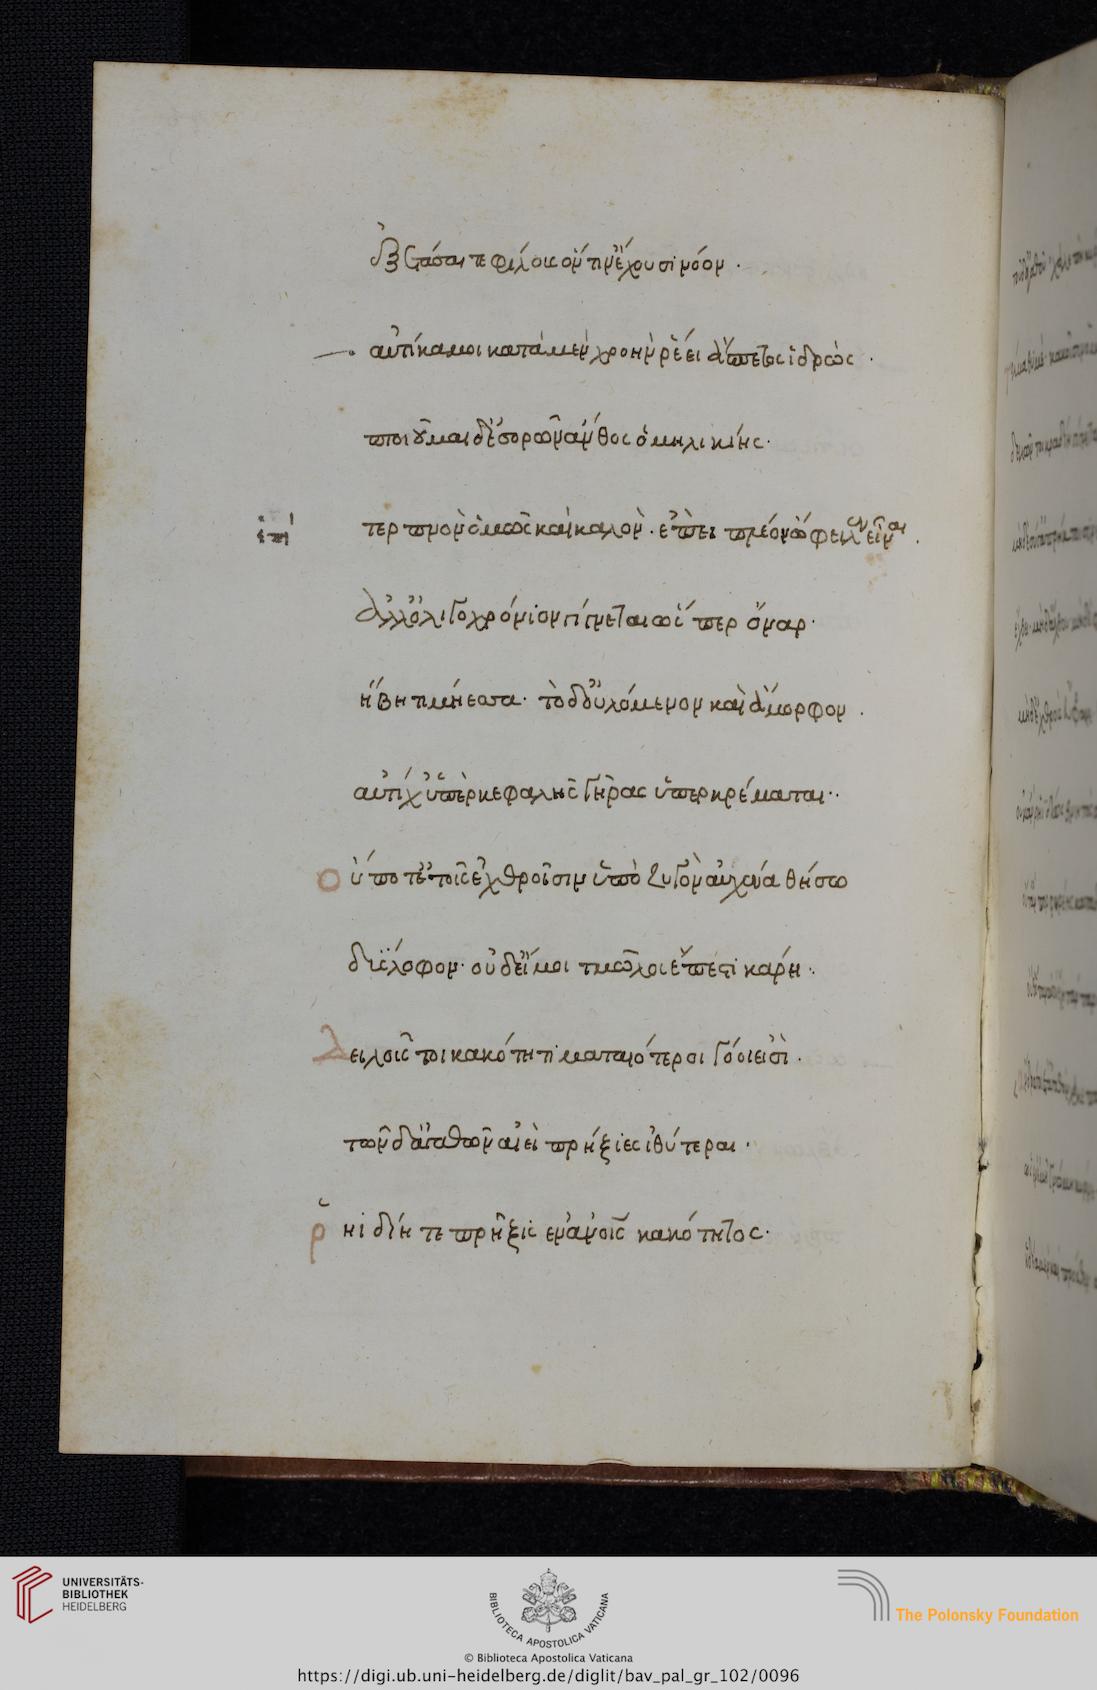 ἐξετάσαι τε φίλους ὅντιν ἔχουσι νόον.
αὐτίκα μοι κατὰ μὲν χροιὴν ῥέει ἄσπετος ἱδρώς.
πτοιοῦμαι δ' ἐσορῶν ἄνθος ὁμηλικίης·
τερπνὸν ὁμῶς καὶ καλὸν. ἐπεὶ πλέον ὤφειλεν εἶναι.
ἀλλ' ὀλιγοχρόνιον γίγνεται ὥσπερ ὄναρ·
ἥβη τιμήεσσα· τὸ δ' οὐλόμενον καὶ ἄμορφον.
αὐτίχ' ὑπὲρ κεφαλῆς γῆρας ὑπερκρέμαται·
οὔποτε τοῖς ἐχθροῖσιν ὑπὸ ζυγὸν αὐχένα θήσω
δύσλοφον· οὐδ' εἴ μοι τμῶλος ἔπεστι κάρη·
δειλοῖς τοι κακότητι ματαιότεροι νόοι εἰσί.
τῶν δ' ἀγαθῶν αἰεὶ πρήξιες ἰθύτεραι.
ῥηϊδίη τε πρῆξις ἐν ἀνοις κακότητος·
UNIVERSITÄTS-
BIBLIOTHEK
HEIDELBERG
BIBLIOTECA APOSTOLICA VATICANA
The Polonsky Foundation
© Biblioteca Apostolica Vaticana
https://digi.ub.uni-heidelberg.de/diglit/bav_pal_gr_102/0096